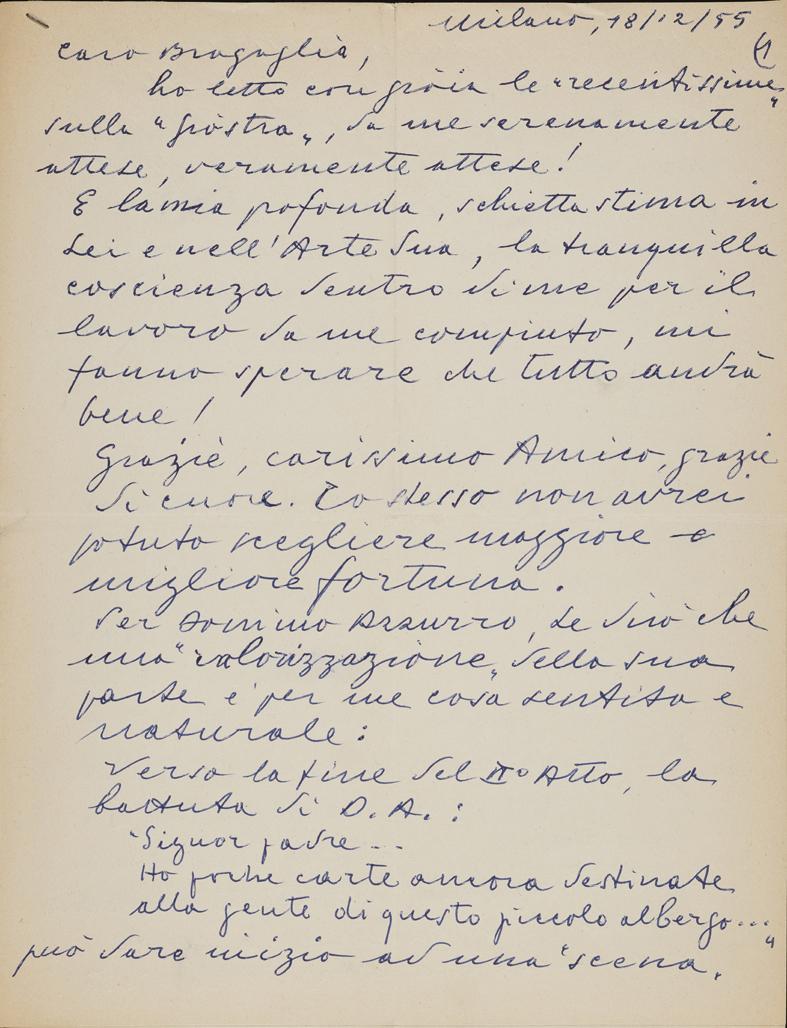 Milano, 18/12/55
(1
Caro Bragaglia,
ho letto con gioia le "recentissime"
sulla "Giostra", da me serenamente
attese, veramente attese!
E la mia profonda, schietta stima in
Lei e nell'Arte Sua, la tranquilla
coscienza dentro di me per il
lavoro da me compiuto, mi
fanno sperare che tutto andrà
bene!
Grazie, carissimo Amico, grazie
di cuore. Io stesso non avrei
potuto scegliere maggiore e
migliore fortuna.
Per Domino Azzurro, Le dirò che
una "valorizzazione" della sua
parte è per me cosa sentita e
naturale:
Verso la fine del II° Atto, la
battuta di D.A.:
"Signor padre...
Ho poche carte ancora destinate
alla gente di questo piccolo albergo..."
può dare inizio ad una "scena"